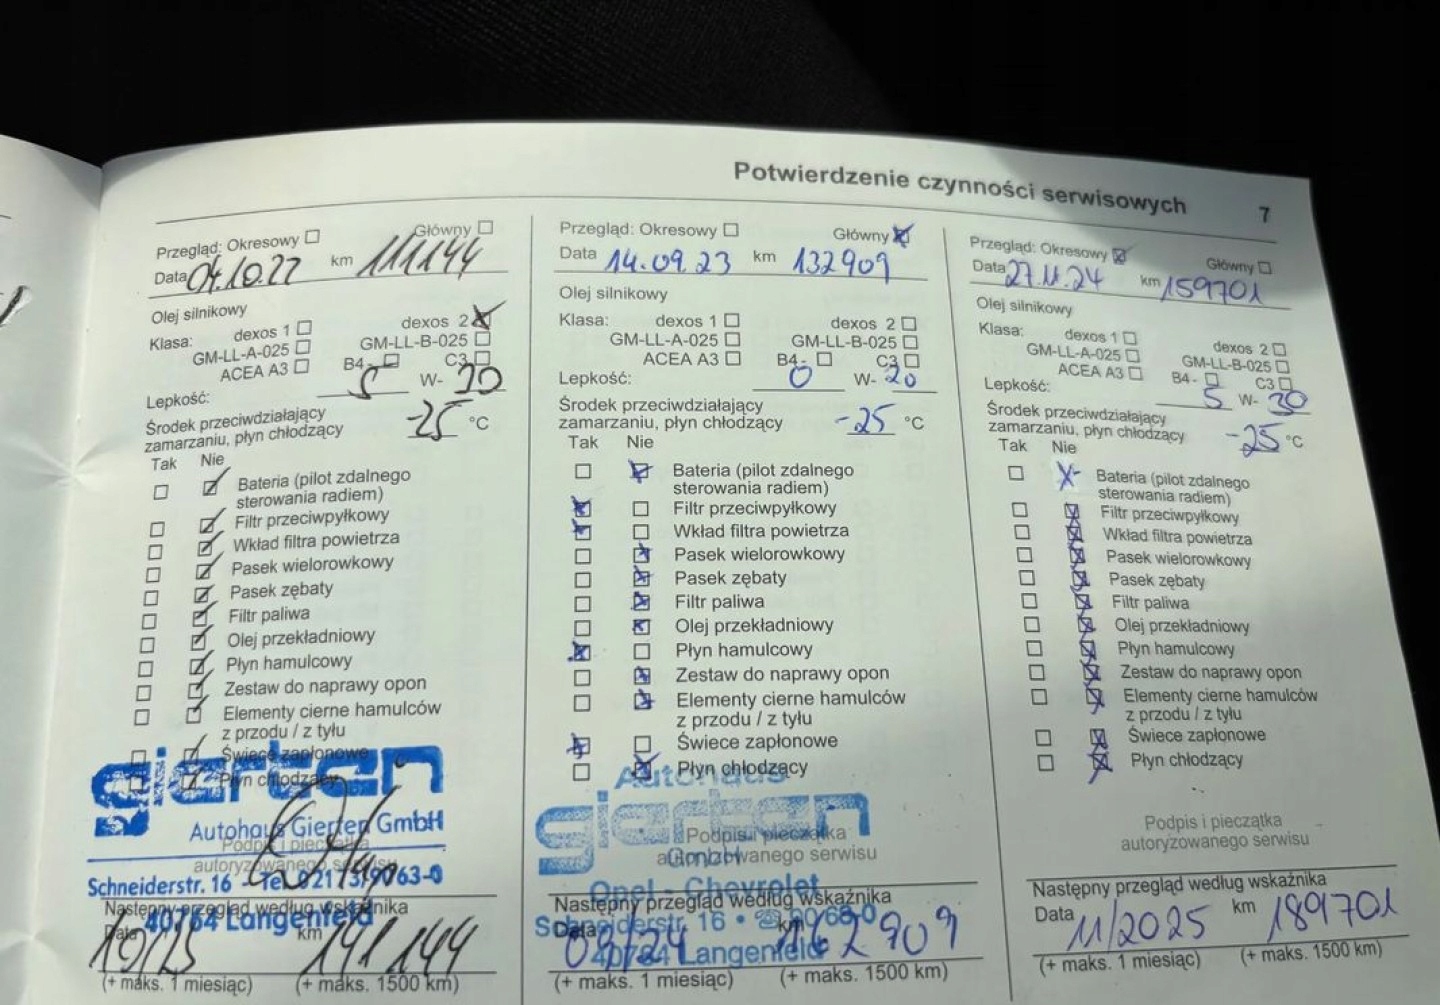 Potwierdzenie czynności serwisowych 7
Przegląd: Okresowy Główny
Data 04.10.22 km 111144
Olej silnikowy
Klasa: dexos 1 dexos 2
GM-LL-A-025 GM-LL-B-025
ACEA A3 B4- C3
Lepkość: 5 W- 30
Środek przeciwdziałający
zamarzaniu, płyn chłodzący -25 °C
Tak Nie
Bateria (pilot zdalnego
sterowania radiem)
Filtr przeciwpyłkowy
Wkład filtra powietrza
Pasek wielorowkowy
Pasek zębaty
Filtr paliwa
Olej przekładniowy
Płyn hamulcowy
Zestaw do naprawy opon
Elementy cierne hamulców
z przodu / z tyłu
Świece zapłonowe
Płyn chłodzący
gierten
Autohaus Gierten GmbH
Podpis i pieczątka
autoryzowanego serwisu
Schneiderstr. 16 - Tel. 02173/9063-0
Następny przegląd według wskaźnika
40764 Langenfeld
Data 10/23 km 141144
(+ maks. 1 miesiąc) (+ maks. 1500 km)
Przegląd: Okresowy Główny
Data 14.09.23 km 132909
Olej silnikowy
Klasa: dexos 1 dexos 2
GM-LL-A-025 GM-LL-B-025
ACEA A3 B4- C3
Lepkość: 0 W- 20
Środek przeciwdziałający
zamarzaniu, płyn chłodzący -25 °C
Tak Nie
Bateria (pilot zdalnego
sterowania radiem)
Filtr przeciwpyłkowy
Wkład filtra powietrza
Pasek wielorowkowy
Pasek zębaty
Filtr paliwa
Olej przekładniowy
Płyn hamulcowy
Zestaw do naprawy opon
Elementy cierne hamulców
z przodu / z tyłu
Świece zapłonowe
Płyn chłodzący
Autohaus
gierten
Podpis i pieczątka
autoryzowanego serwisu
GmbH
Opel - Chevrolet
Następny przegląd według wskaźnika
Schneiderstr. 16 • ☎ 90 63-0
Data 09/24 km 162909
40764 Langenfeld
(+ maks. 1 miesiąc) (+ maks. 1500 km)
Przegląd: Okresowy Główny
Data 27.11.24 km 159701
Olej silnikowy
Klasa: dexos 1 dexos 2
GM-LL-A-025 GM-LL-B-025
ACEA A3 B4- C3
Lepkość: 5 W- 30
Środek przeciwdziałający
zamarzaniu, płyn chłodzący -25 °C
Tak Nie
Bateria (pilot zdalnego
sterowania radiem)
Filtr przeciwpyłkowy
Wkład filtra powietrza
Pasek wielorowkowy
Pasek zębaty
Filtr paliwa
Olej przekładniowy
Płyn hamulcowy
Zestaw do naprawy opon
Elementy cierne hamulców
z przodu / z tyłu
Świece zapłonowe
Płyn chłodzący
Podpis i pieczątka
autoryzowanego serwisu
Następny przegląd według wskaźnika
Data 11/2025 km 189701
(+ maks. 1 miesiąc) (+ maks. 1500 km)